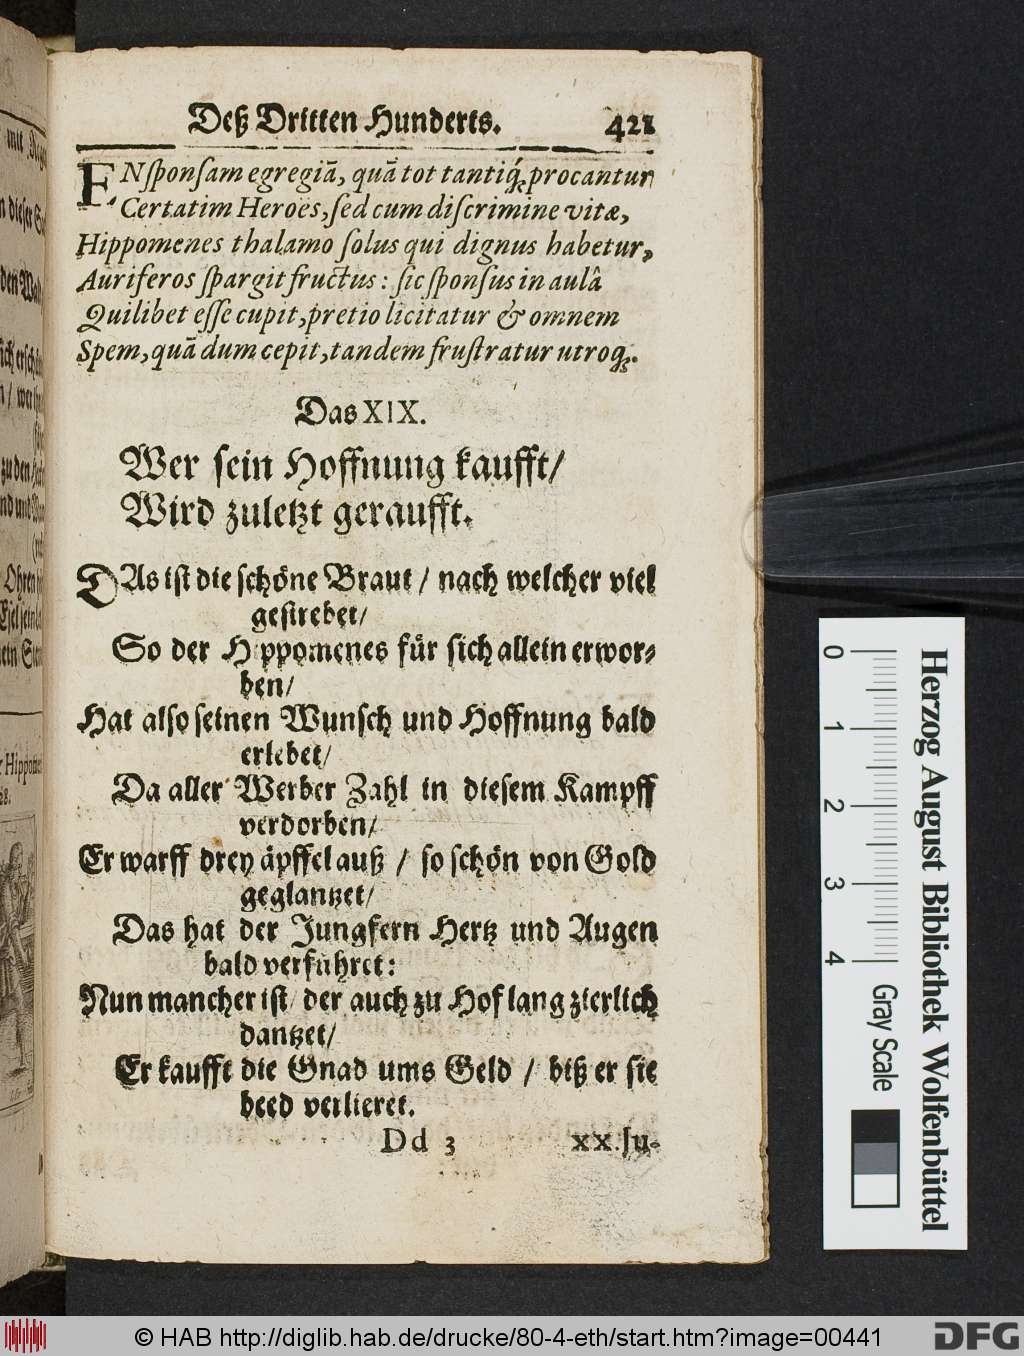 Deß Dritten Hunderts. 421
EN sponsam egregiā, quā tot tantiq́; procantur
Certatim Heroes, sed cum discrimine vitæ,
Hippomenes thalamo solus qui dignus habetur,
Auriferos spargit fructus: sic sponsus in aulâ
Quilibet esse cupit, pretio licitatur & omnem
Spem, quā dum cepit, tandem frustratur utroq;.
Das XIX.
Wer sein Hoffnung kaufft/
Wird zuletzt geraufft.
DAs ist die schöne Braut / nach welcher viel
gestrebet/
So der Hippomenes für sich allein erwor-
ben/
Hat also seinen Wunsch und Hoffnung bald
erlebet/
Da aller Werber Zahl in diesem Kampff
verdorben/
Er warff drey äpffel auß / so schön von Gold
geglantzet/
Das hat der Jungfern Hertz und Augen
bald verführet:
Nun mancher ist/ der auch zu Hof lang zierlich
dantzet/
Er kaufft die Gnad ums Geld / biß er sie
beed verlieret.
Dd 3 xx. Ju-
0 1 2 3 4
Gray Scale
Herzog August Bibliothek Wolfenbüttel
© HAB http://diglib.hab.de/drucke/80-4-eth/start.htm?image=00441
DFG